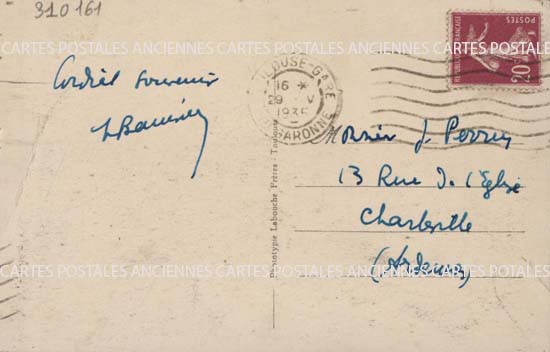 310161
RÉPUBLIQUE FRANÇAISE
POSTES
20c
TOULOUSE-GARE
16 *
29 V
1935
GARONNE
Cordial souvenir
Monsieur J. Perrin
13 Rue de l'Église
Charleville
(Ardennes)
Phototypie Labouche Frères - Toulouse
CARTES POSTALES ANCIENNES CARTES POSTALES ANCIENNES CARTES POSTALES
CARTES POSTALES ANCIENNES CARTES POSTALES ANCIENNES CARTES POSTALES